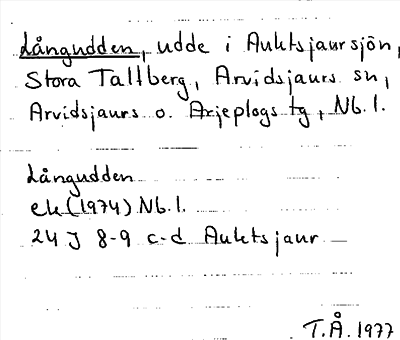 Långudden, udde i Auktsjaursjön,
Stora Tallberg, Arvidsjaurs sn,
Arvidsjaurs o. Arjeplogs tg, Nb. l.
Långudden
ek (1974) Nb. l.
24 J 8-9 c-d Auktsjaur
T.Å. 1977